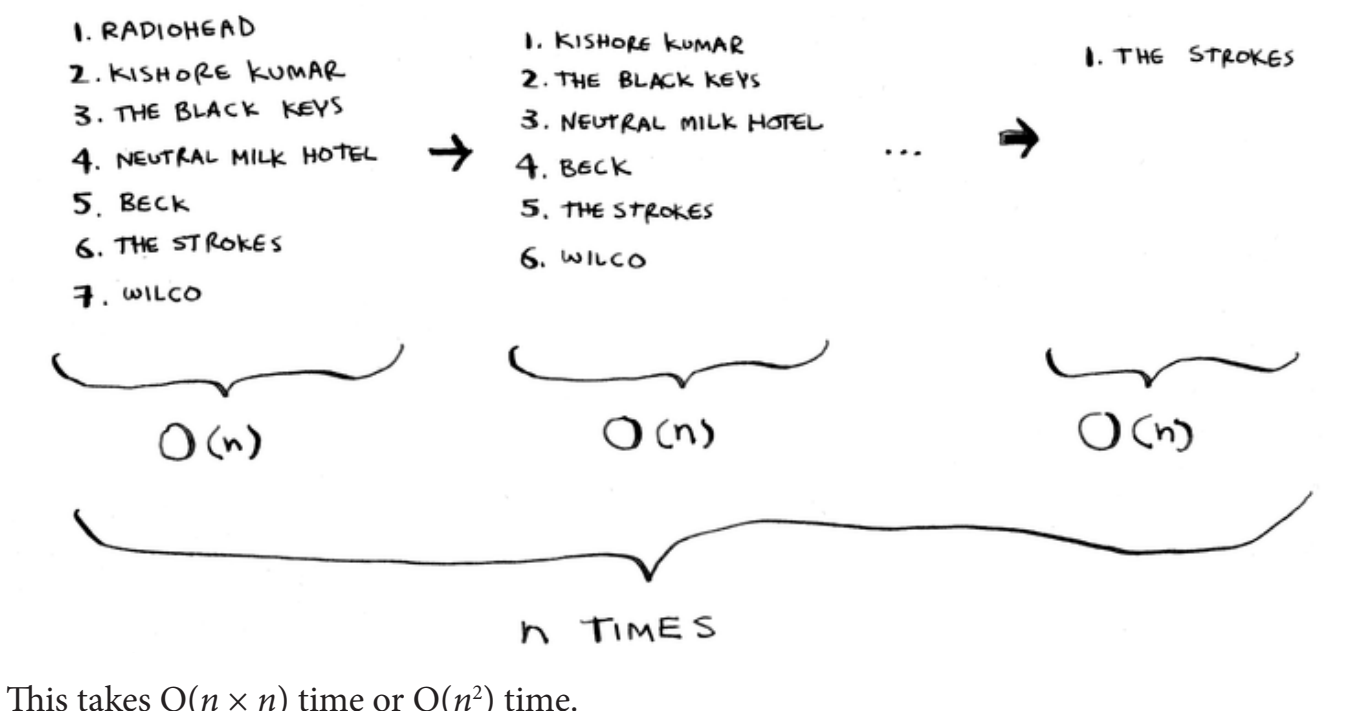 1. RADIOHEAD
2. KISHORE KUMAR
3. THE BLACK KEYS
4. NEUTRAL MILK HOTEL
5. BECK
6. THE STROKES
7. WILCO
→
1. KISHORE KUMAR
2. THE BLACK KEYS
3. NEUTRAL MILK HOTEL
4. BECK
5. THE STROKES
6. WILCO
...
→
1. THE STROKES
O(n)
O(n)
O(n)
n TIMES
This takes O(n × n) time or O(n²) time.